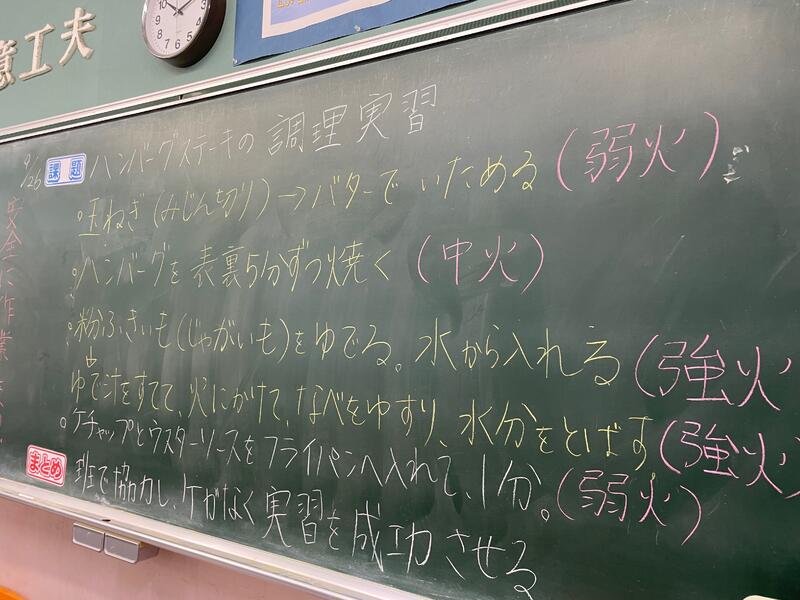 意工夫
10
3
4
5
6
7
8
9
9/26 課題 ハンバーグステーキの調理実習
安全に作業
。玉ねぎ(みじん切り)→バターでいためる(弱火)
。ハンバーグを表裏5分ずつ焼く(中火)
。粉ふきいも(じゃがいも)をゆでる。水から入れる(強火
ゆで汁をすてて、火にかけて、なべをゆすり、水分をとばす(強火)
。ケチャップとウスターソースをフライパンへ入れて、1分。(弱火)
まとめ 班で協力し、ケガなく実習を成功させる